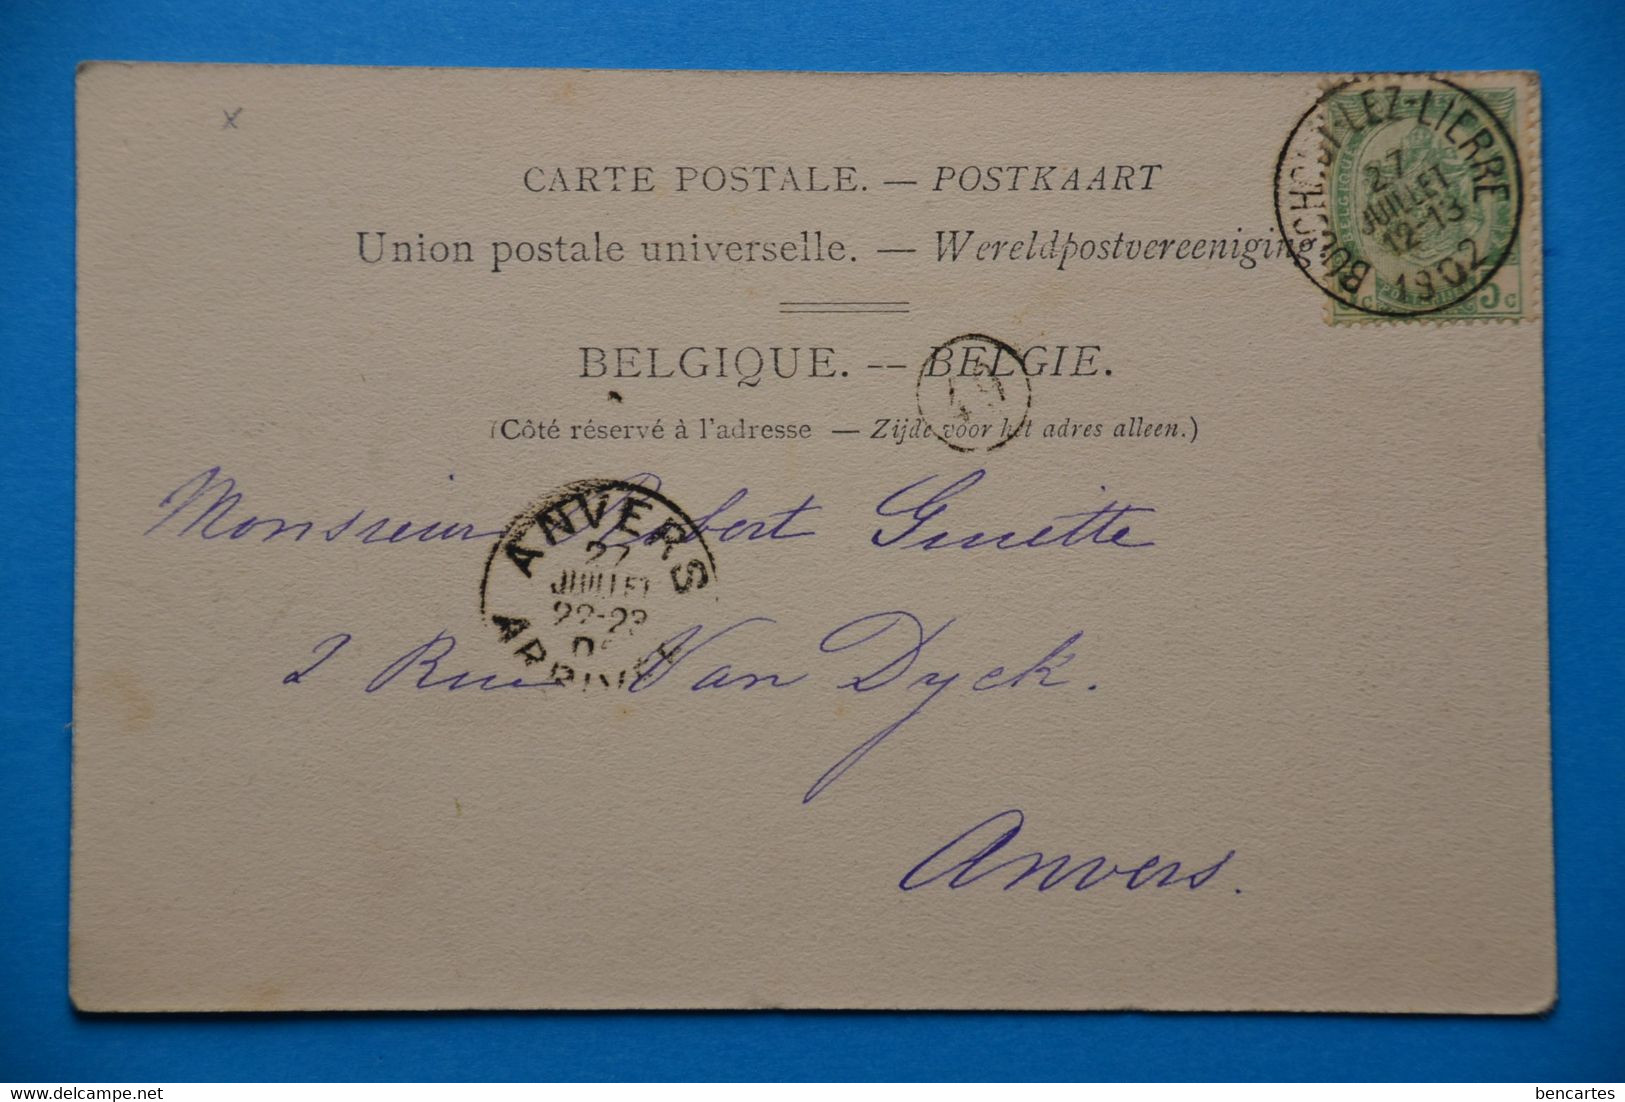 CARTE POSTALE. — POSTKAART
Union postale universelle. — Wereldpostvereeniging
BELGIQUE. -- BELGIE.
(Côté réservé à l'adresse — Zijde voor het adres alleen.)
LEZ-LIERRE
27
JUILLET
12-13
1902
5 C
Monsieur Robert Guiette
ANVERS
27
JUILLET
22-23
2 Rue Van Dyck.
Anvers.
delcampe.net
bencartes